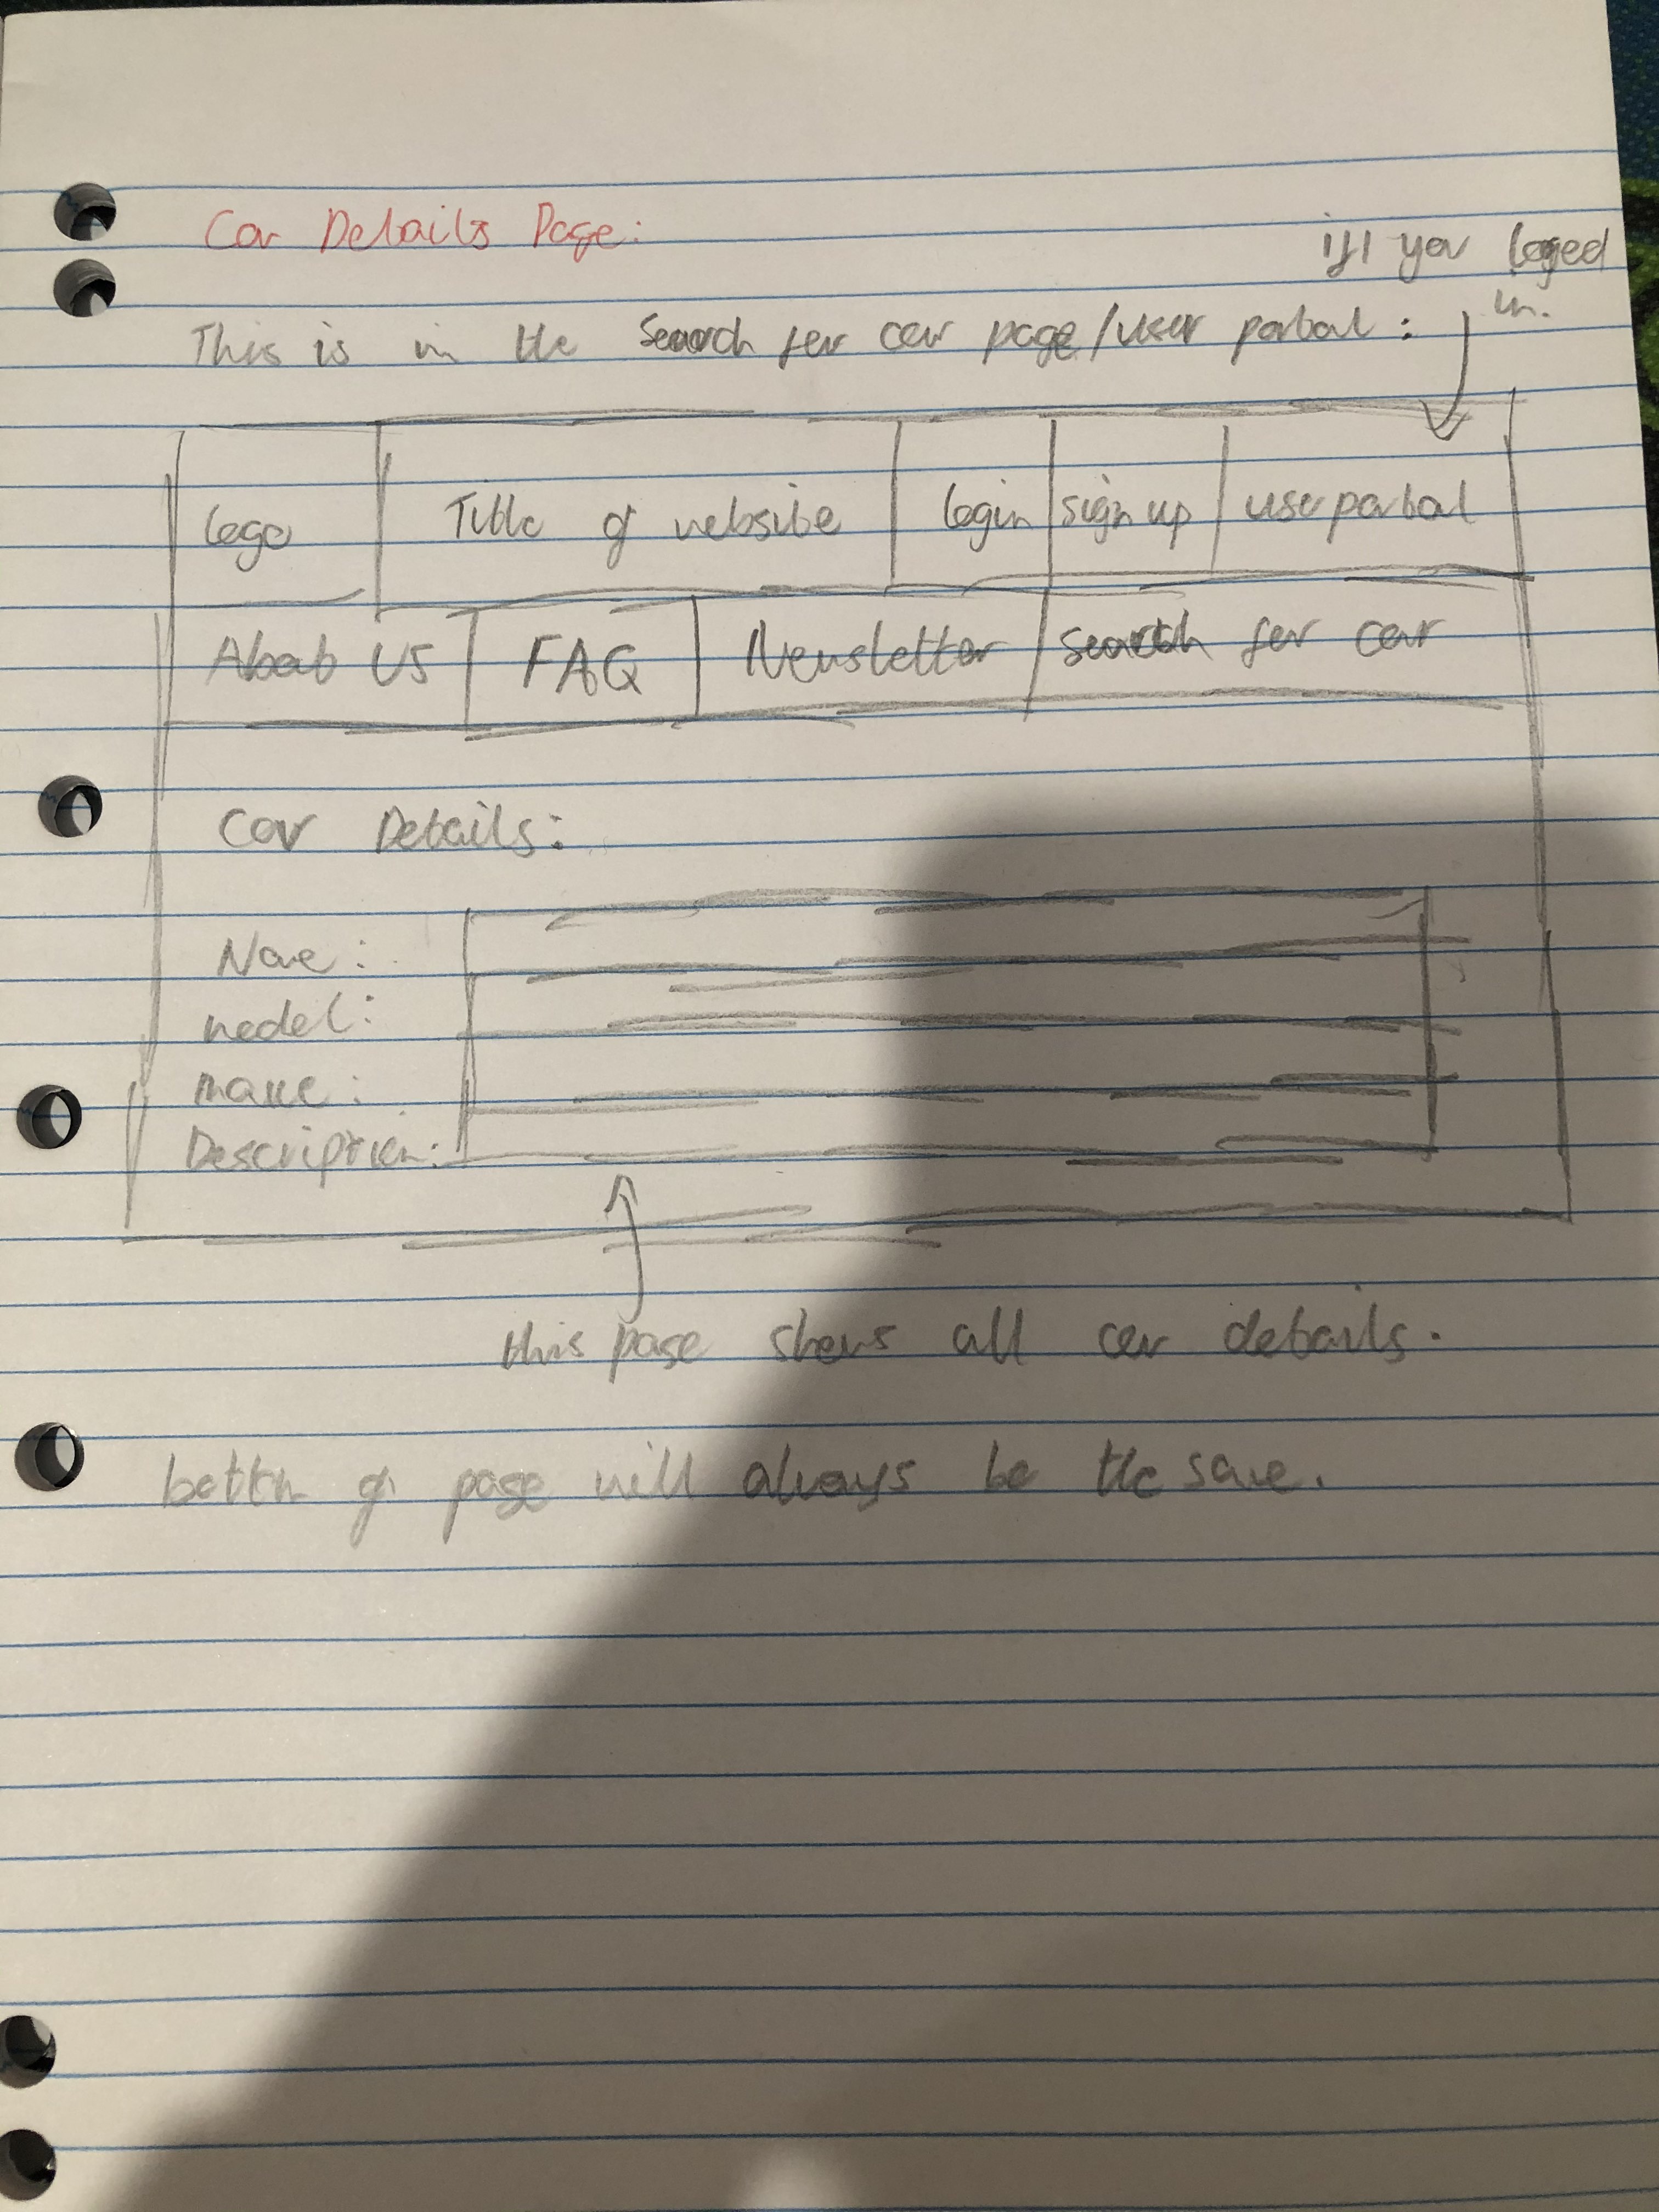 Car Details Page:
if you loged
in.
This is in the Search for car page/user portal:
logo Title of website login sign up user portal
About US FAQ Newsletter Search for car
Car Details:
Name:
model:
make:
Description:
this page shows all car details.
bottom of page will always be the same.